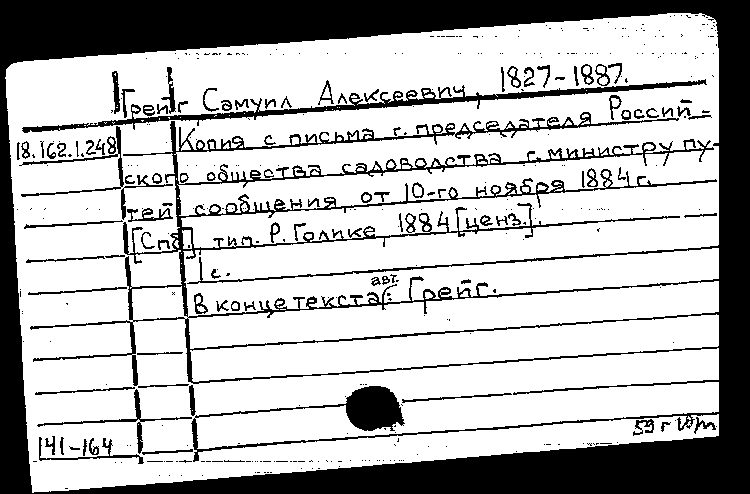 Грейг Самуил Алексеевич, 1827-1887.
18.162.1.248 Копия с письма г. председателя Россий-
ского общества садоводства г. министру пу-
тей сообщения, от 10-го ноября 1884 г.
[Спб.], тип. Р. Голике, 1884 [ценз.].
1 с.
В конце текста авт.: Грейг.
141-164 59 г